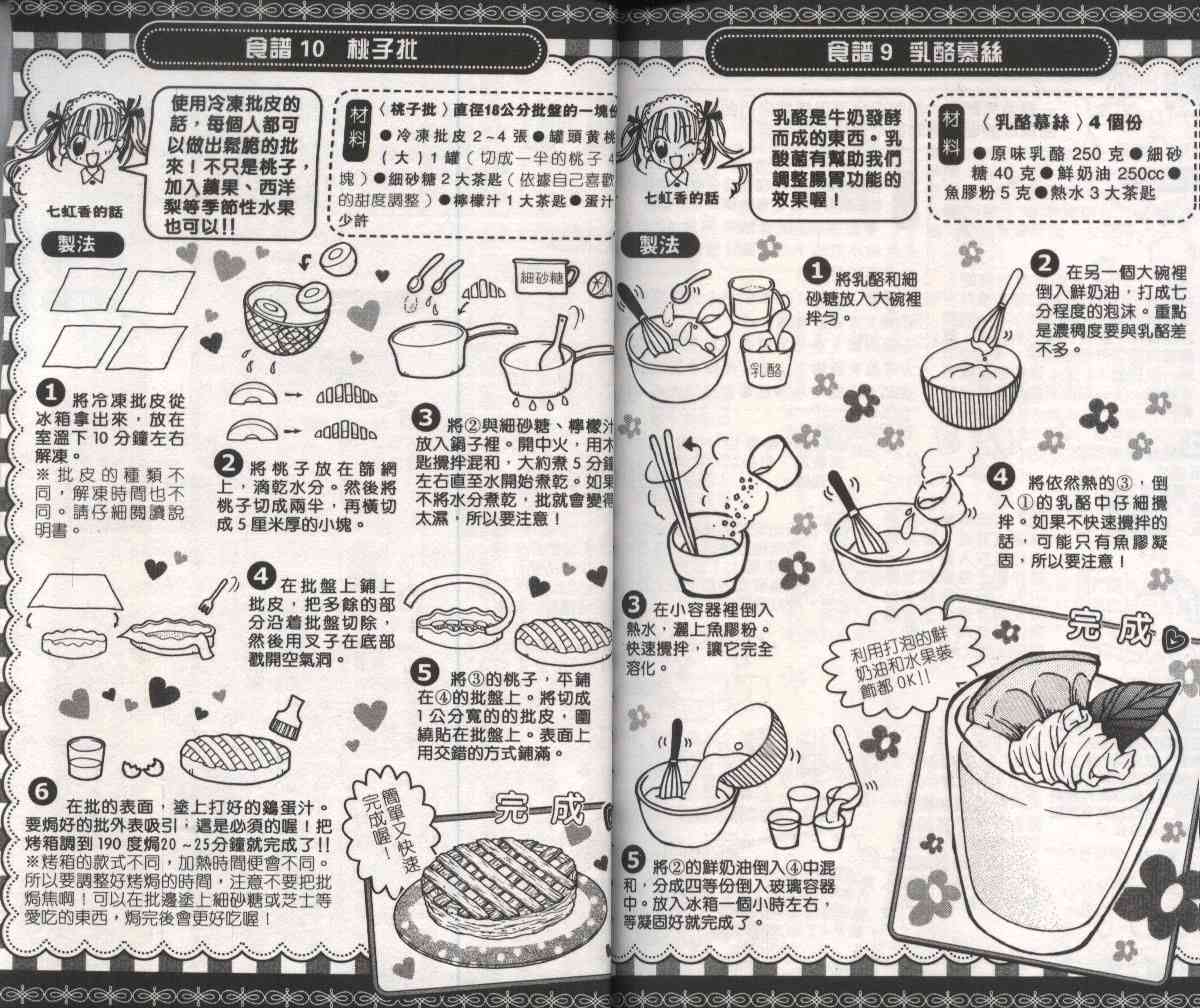 食譜9 乳酪慕絲
乳酪是牛奶發酵
而成的東西。乳
酸菌有幫助我們
調整腸胃功能的
效果喔！
七虹香的話
材料
〈乳酪慕絲〉4個份
●原味乳酪 250 克●細砂
糖 40 克●鮮奶油 250cc●
魚膠粉 5 克●熱水 3 大茶匙
製法
乳酪
❶ 將乳酪和細
砂糖放入大碗裡
拌勻。
❷ 在另一個大碗裡
倒入鮮奶油，打成七
分程度的泡沫。重點
是濃稠度要與乳酪差
不多。
❸ 在小容器裡倒入
熱水，灑上魚膠粉。
快速攪拌，讓它完全
溶化。
❹ 將依然熱的③，倒
入①的乳酪中仔細攪
拌。如果不快速攪拌的
話，可能只有魚膠凝
固，所以要注意！
❺ 將②的鮮奶油倒入④中混
和，分成四等份倒入玻璃容器
中。放入冰箱一個小時左右，
等凝固好就完成了。
利用打泡的鮮
奶油和水果裝
飾都 OK!!
完成
食譜10 桃子批
使用冷凍批皮的
話，每個人都可
以做出鬆脆的批
來！不只是桃子，
加入蘋果、西洋
梨等季節性水果
也可以!!
七虹香的話
材料
〈桃子批〉直徑18公分批盤的一塊份
●冷凍批皮 2~4 張●罐頭黃桃
（大）1 罐（切成一半的桃子 4
塊）●細砂糖 2 大茶匙（依據自己喜歡
的甜度調整）●檸檬汁 1 大茶匙●蛋汁
少許
製法
細砂糖
❶ 將冷凍批皮從
冰箱拿出來，放在
室溫下 10 分鐘左右
解凍。
※批皮的種類不
同，解凍時間也不
同。請仔細閱讀說
明書。
❷ 將桃子放在篩網
上，滴乾水分。然後將
桃子切成兩半，再橫切
成 5 厘米厚的小塊。
❸ 將②與細砂糖、檸檬汁
放入鍋子裡。開中火，用木
匙攪拌混和，大約煮 5 分鐘
左右直至水開始煮乾。如果
不將水分煮乾，批就會變得
太濕，所以要注意！
❹ 在批盤上鋪上
批皮，把多餘的部
分沿着批盤切除，
然後用叉子在底部
戳開空氣洞。
❺ 將③的桃子，平鋪
在④的批盤上。將切成
1公分寬的的批皮，圍
繞貼在批盤上。表面上
用交錯的方式鋪滿。
❻ 在批的表面，塗上打好的雞蛋汁。
要焗好的批外表吸引，這是必須的喔！把
烤箱調到 190 度焗20 ~ 25分鐘就完成了!!
※烤箱的款式不同，加熱時間便會不同。
所以要調整好烤焗的時間，注意不要把批
焗焦啊！可以在批邊塗上細砂糖或芝士等
愛吃的東西，焗完後會更好吃喔！
簡單又快速
完成喔！
完成